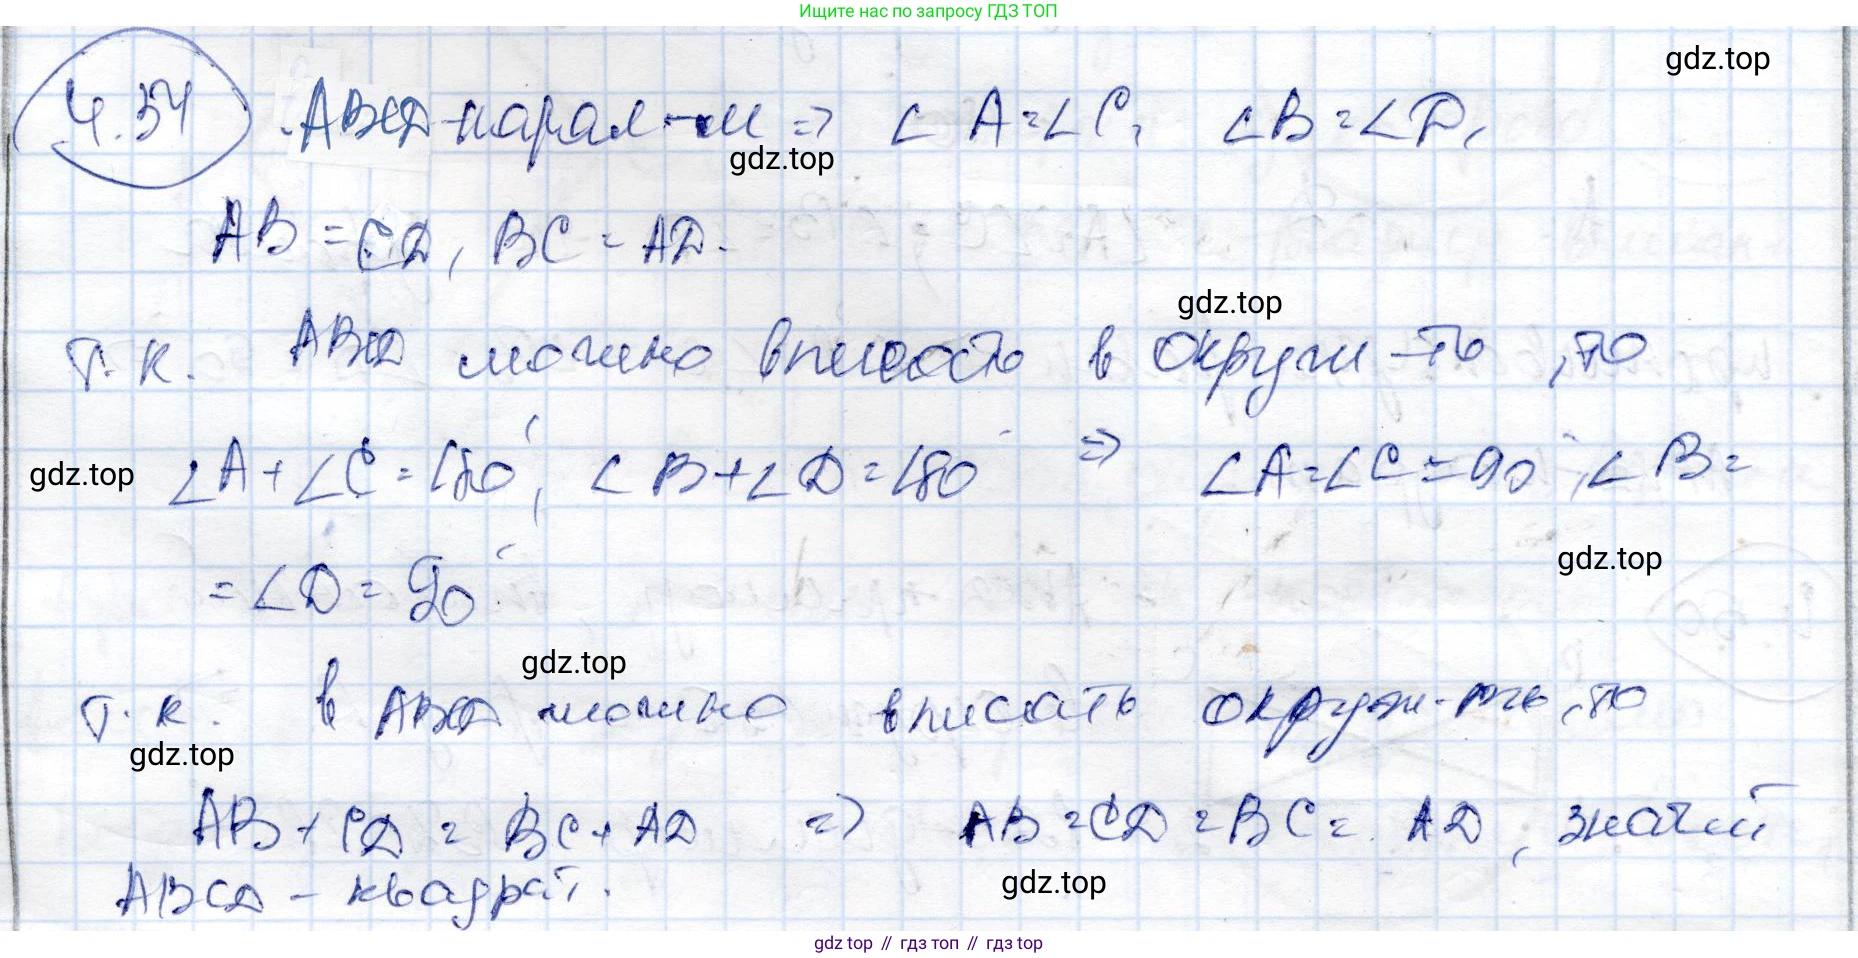 Ищите нас по запросу ГДЗ ТОП
gdz.top
4.34 ABCD-парал-м => ∠A=∠C, ∠B=∠D,
gdz.top
AB=CD, BC=AD.
gdz.top
т.к. ABCD можно вписать в окружн-ть, то
gdz.top ∠A+∠C=180°, ∠B+∠D=180° => ∠A=∠C=90°, ∠B=
gdz.top
=∠D=90°
gdz.top
т.к. в ABCD можно вписать окружн-ть, то
gdz.top
AB+CD=BC+AD => AB=CD=BC=AD, значит
gdz.top
ABCD - квадрат.
gdz top // гдз топ // гдз top